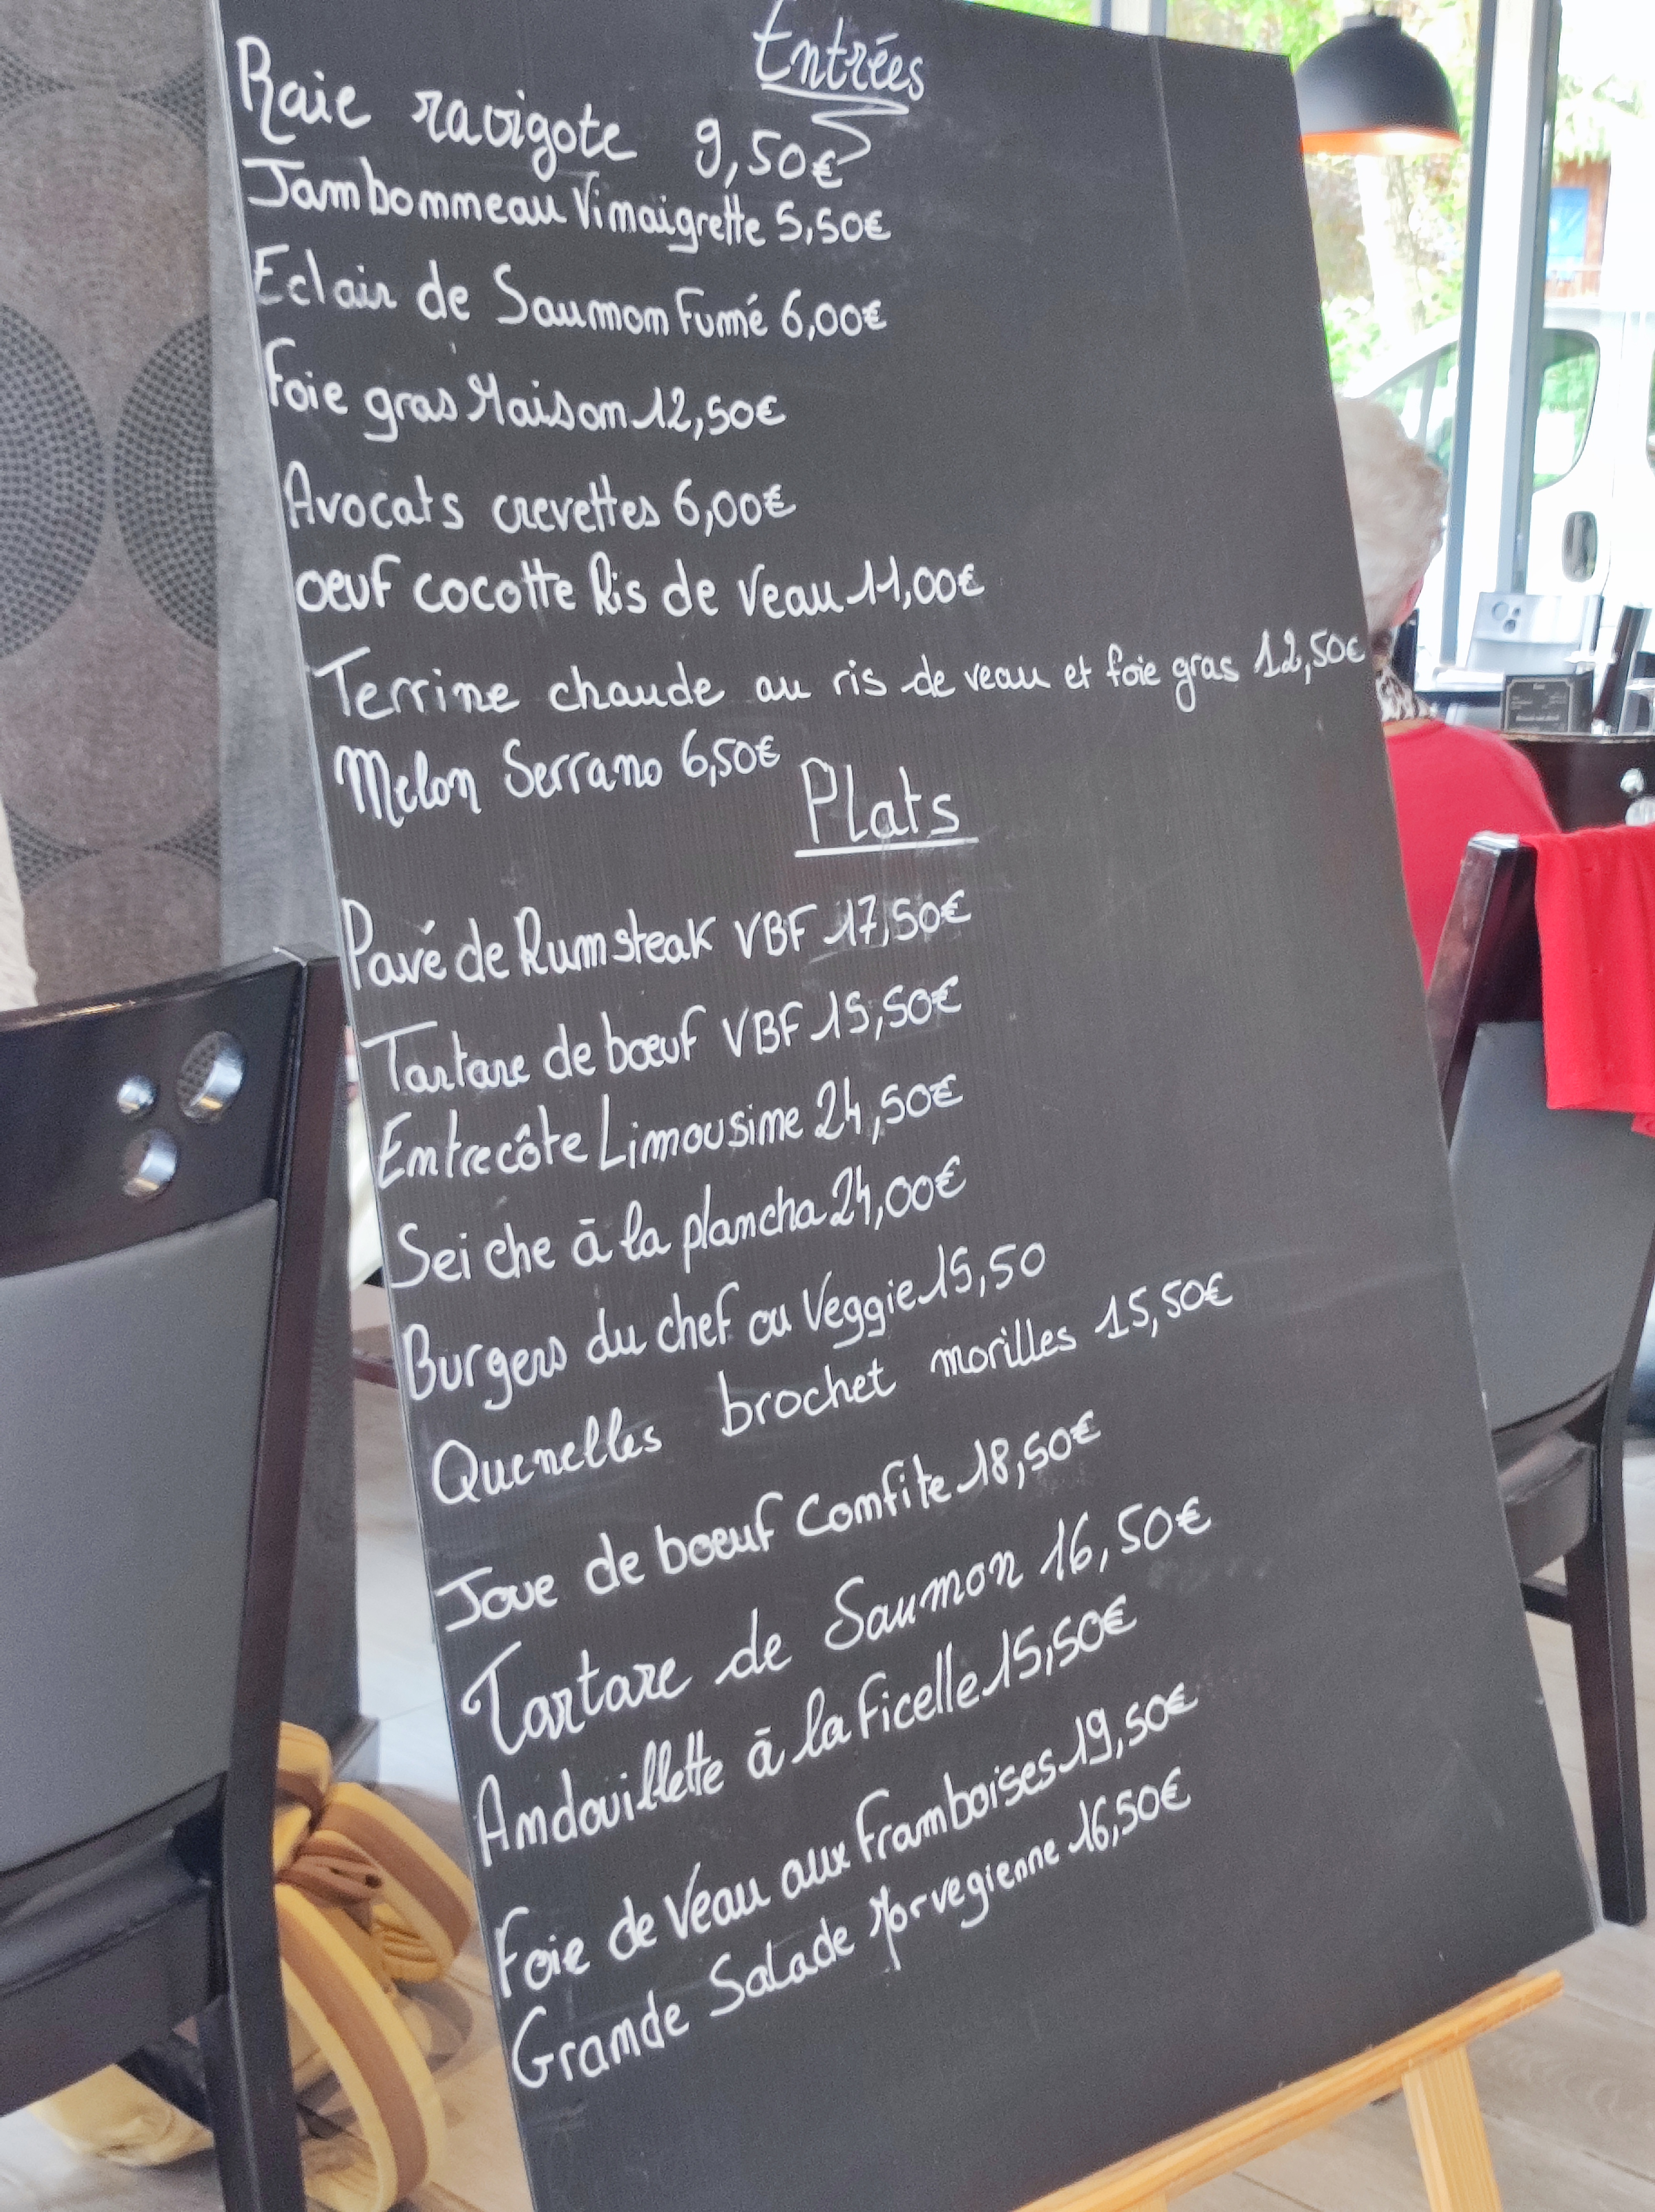 Entrées
Raie ravigote 9,50€
Jambonneau Vinaigrette 5,50€
Eclair de Saumon Fumé 6,00€
Foie gras Maison 12,50€
Avocats crevettes 6,00€
oeuf cocotte Ris de Veau 11,00€
Terrine chaude au ris de veau et foie gras 12,50€
Melon Serrano 6,50€
Plats
Pavé de Rumsteak VBF 17,50€
Tartare de bœuf VBF 15,50€
Entrecôte Limousine 24,50€
Seiche à la plancha 24,00€
Burgers du chef ou Veggie 15,50
Quenelles brochet morilles 15,50€
Joue de boeuf Confite 18,50€
Tartare de Saumon 16,50€
Andouillette à la Ficelle 15,50€
Foie de Veau aux Framboises 19,50€
Grande Salade Norvegienne 16,50€